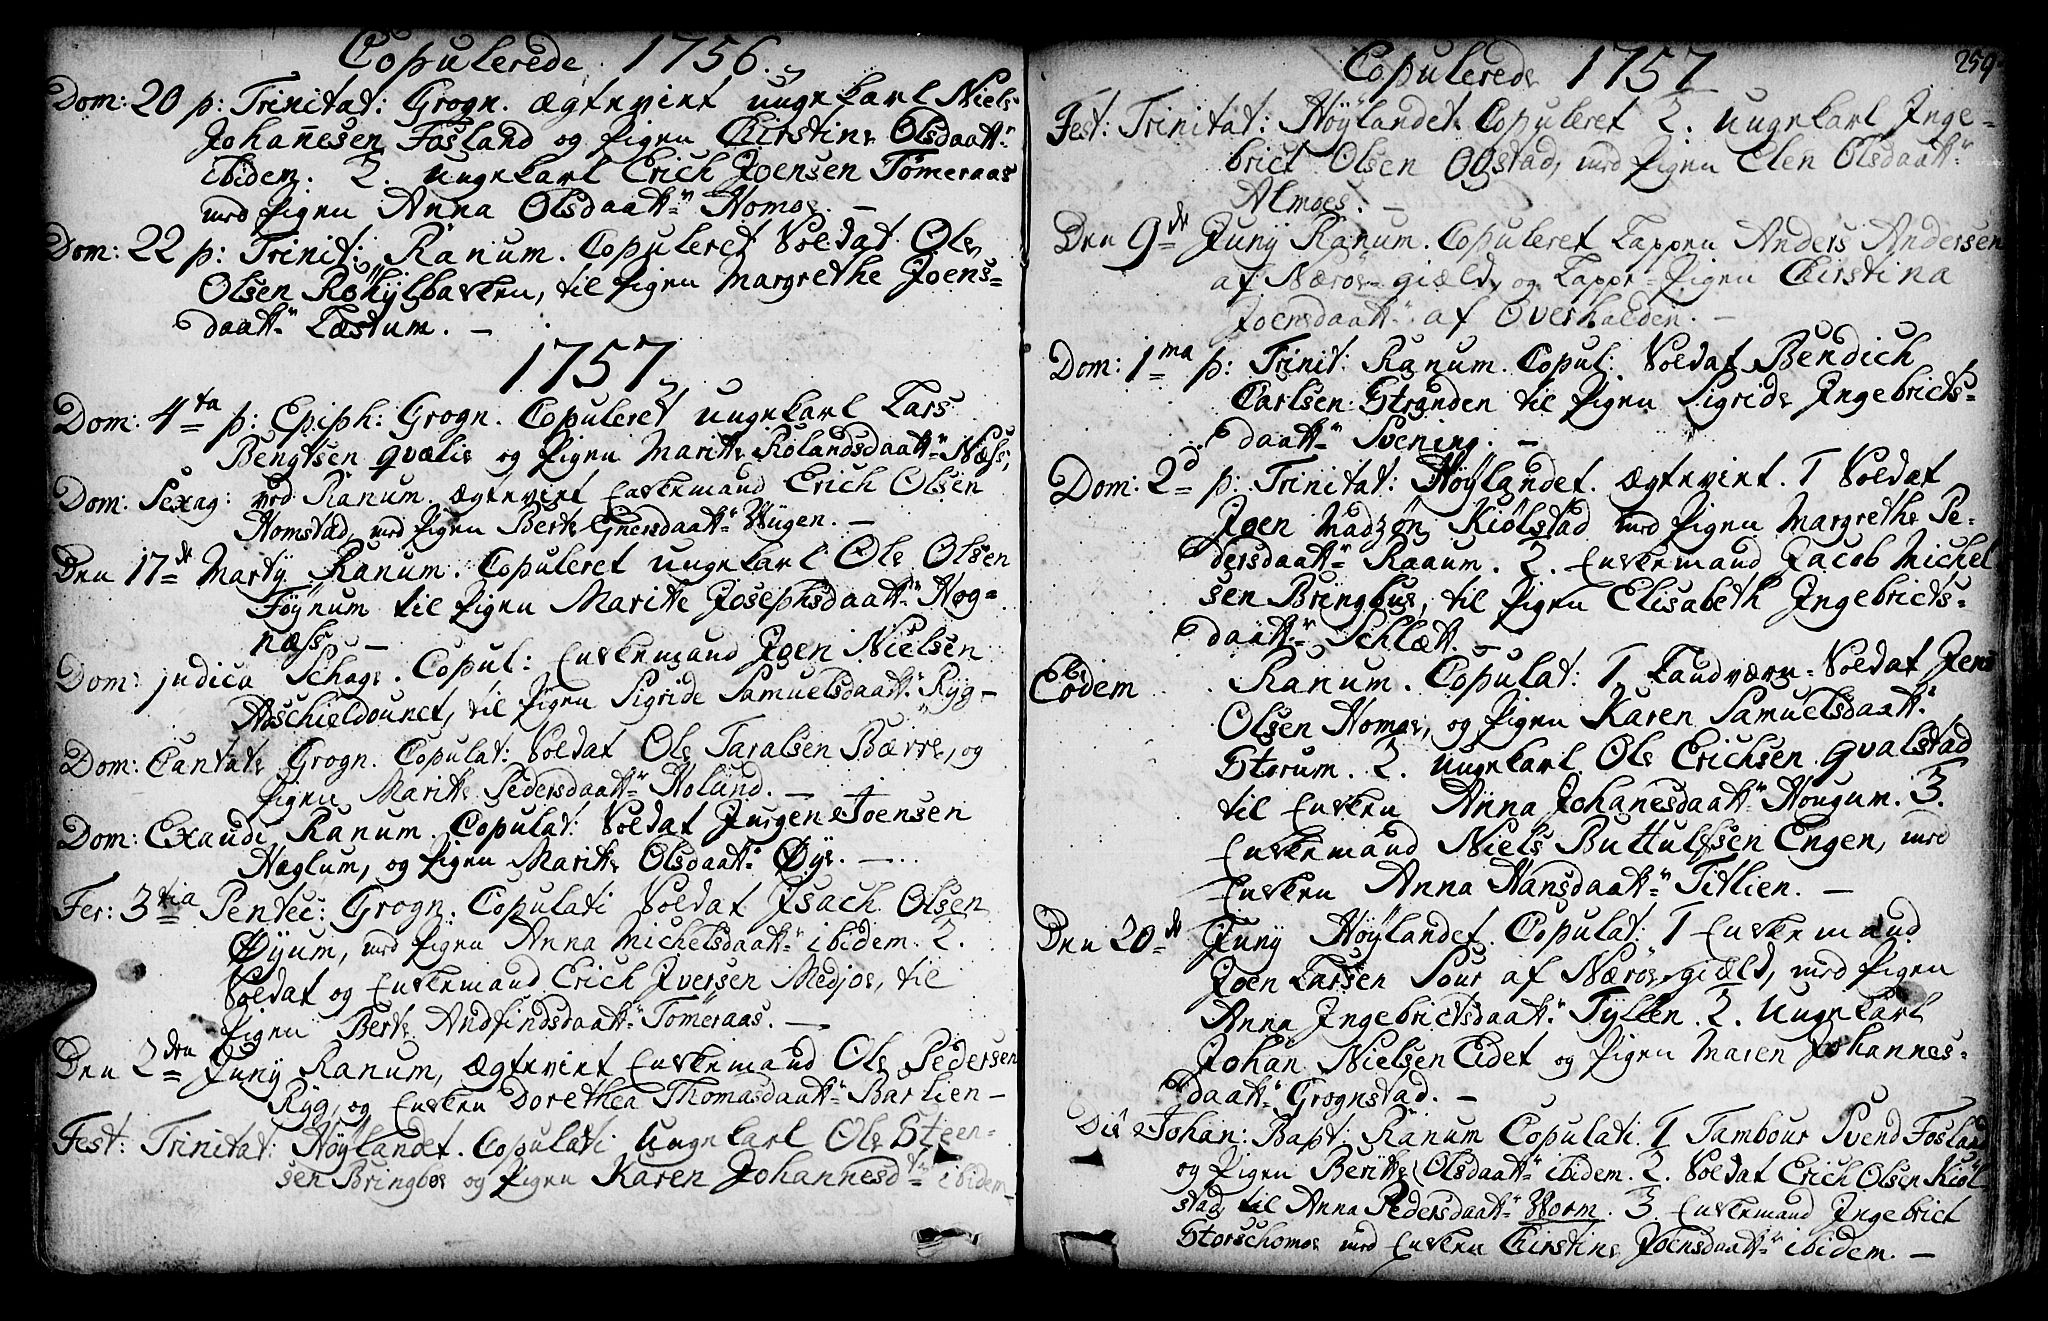 Copulerede 1756.
Dom: 20 p: Trinitat: Grogn. Ægteviet ungekarl Niels
Johañesen Fosland og Pigen Chirstine Olsdaatt:
ibidem. 2. ungekarl Erich Joensen Tømeraas
med Pigen Anna Olsdaatt: Homoe. —
Dom: 22 p: Trinit: Ranum. Copuleret Soldat Ole
Olsen Røhÿlbakken, til Pigen Margrethe Joens-
daatt: Læstum. —
1757
Dom: 4ta p: Epiph: Grogn. Copuleret ungekarl Lars
Bengtsen qvælie og Pigen Maritte Rolandsdaatt: Næss,
Dom: Sexag: ved Ranum ægteviet Enkemand Erich Olsen
Homstad, med Pigen Berte Enersdaatt: Wügen. —
Den 17de Martÿ Ranum. Copuleret ungekarl Ole Olsen
Føÿnum til Pigen Maritte Josephsdaatt: Høg-
næss —
Dom: judica Schage. Copul: Enkemand Joen Nielsen
Aoschieldounet, til Pigen Sigride Samuelsdaatt: Rÿg-
Dom: Cantate Grogn. Copulat: Soldat Ole Taralsen Bærre, og
Pigen Maritte Pedersdaatt: Holund. —
Dom: Exaudi Ranum. Copulat: Soldat Jurgen Joensen
Hæglum, og Pigen Maritte Olsdaatt: Øÿe. —
Fer: 3tia Pentec: Grogn. Copulati Soldat Isach Olsen
Øÿum, med Pigen Anna Michelsdaatt: ibidem. 2.
Soldat og Enkemand Erich Iversen Medjoe, til
Pigen Berte Andfindsdaatt: Tømeraas. —
Den 2den Junÿ Ranum, Ægteviet Enkemand Ole Pedersen
Rÿg, og Enken Dorethea Thomasdaatt: Barlien —
Fest: Trinitat: Høÿlandet. Copulati Ungekarl Ole Steen-
sen Bringboe og Pigen Karen Johannesd: ibidem —
Copulerede 1757
259
Fest: Trinitat: Høÿlandet Copuleret 2. ungekarl Inge-
brict Olsen Ogstad, med Pigen Elen Olsdaatt:
Almoes. —
Den 9de Junÿ Ranum. Copuleret Lappen Anders Andersen
af Nærøe-gield, og Lappe-Pigen Chirstina
Joensdaatt: af Overhalden. —
Dom: 1ma p: Trinit: Ranum. Copul: Soldat Bendich
Carlsen Stranden til Pigen Sigride Ingebricts-
daatt: Svening. —
Dom: 2d p: Trinitat: Høÿlandet. ægteviet. 1 Soldat
Joen Madzøn Kiølstad med Pigen Margrethe Pe-
dersdaatt: Raaum. 2. Enkemand Jacob Michel
sen Bringbue, til Pigen Elisabeth Ingebricts-
daatt: Schlætt. —
Eodem Ranum. Copulat: 1 Landværn-Soldat Jens
Olsen Homoe, og Pigen Karen Samuelsdaatt:
Storum. 2. ungekarl Ole Erichsen qvalstad
til Enken Anna Johanesdaatt: Hougum. 3.
Enkemand Niels Buttulfsen Engen, med
Enken Anna Hansdaatt: Titlien. —
Den 20de Junÿ Høÿlandet. Copulat: 1 Enkemand
Joen Larsen Sour af Nærøe-gield, med Pigen
Anna Ingebrictsdaatt: Tÿllen. 2. Ungekarl
Johan Nielsen Eidet og Pigen Maren Johannes-
daatt: Grognstad. —
Die Johan: Bapt: Ranum Copulati 1 Tambour Svend Fosland
og Pigen Beritte Olsdaatt: ibidem. 2. Soldat Erich Olsen Kiøl
stad, til Anna Pedersdaatt: Worm. 3. Enkemand Ingebrict
Storschomoe med Enken Chirstine Joensdaatt: ibidem. —